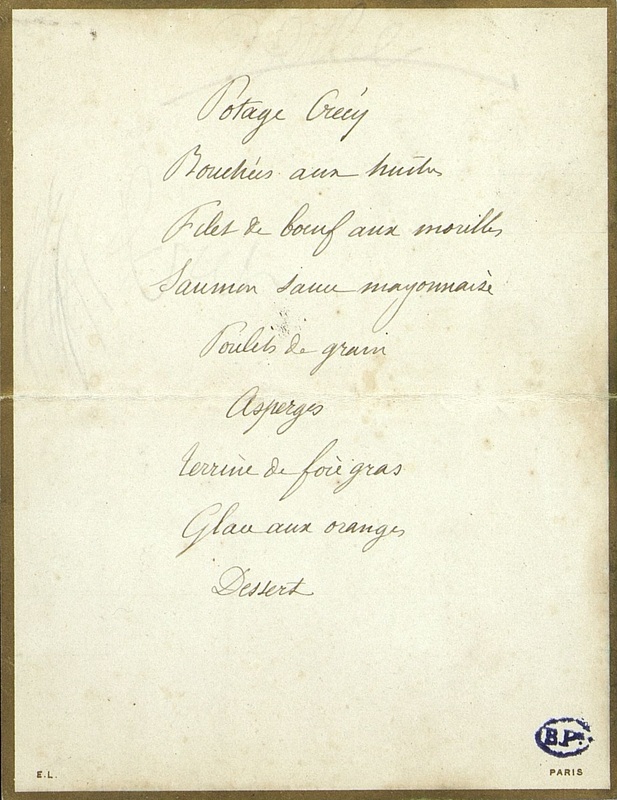 Potage Crécy
Bouchées aux huîtres
Filet de bœuf aux morilles
Saumon sauce mayonnaise
Poulets de grain
Asperges
Terrine de foie gras
Glace aux oranges
Dessert
B.P.
E.L.
PARIS